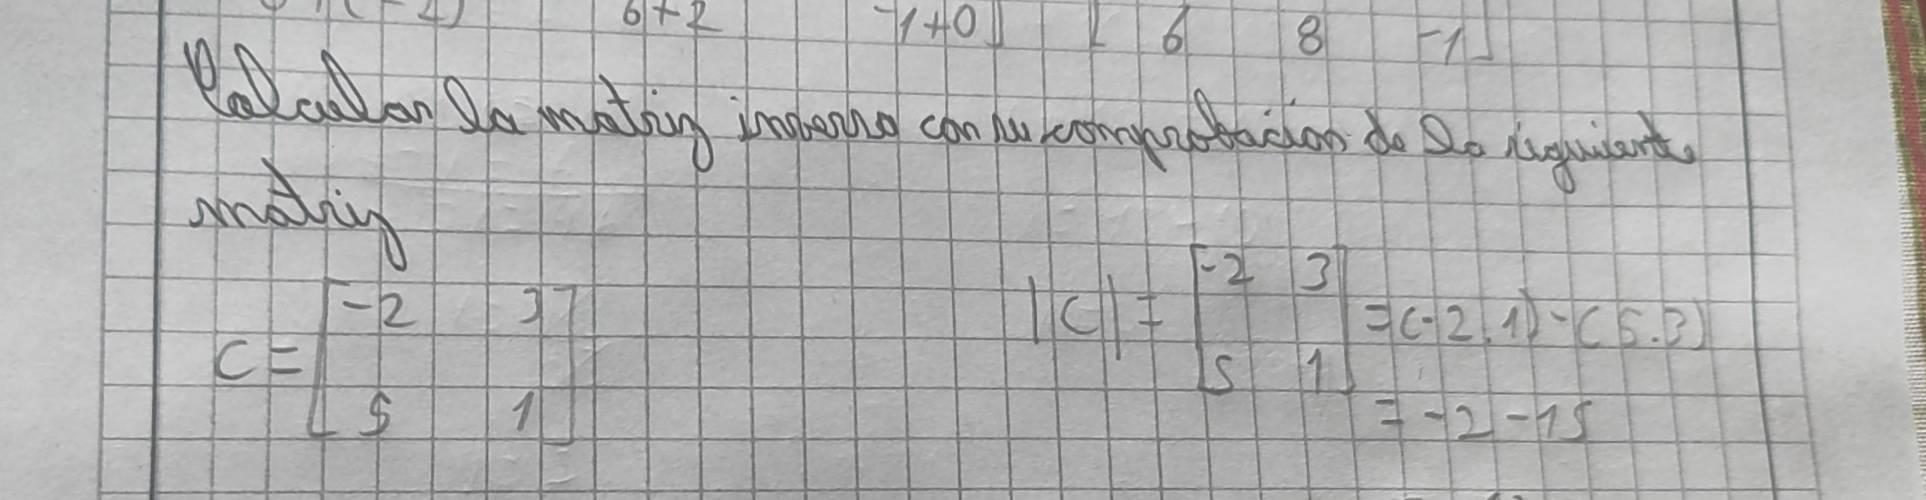 6+2 -1+0] [ 6 8 -1]
Calcular la matriz inversa con su comprobacion de la siguiente
matriz
C = [-2 3] |C| = [-2 3] = (-2.1) - (5.3)
[5 1] [5 1]
= -2 -15